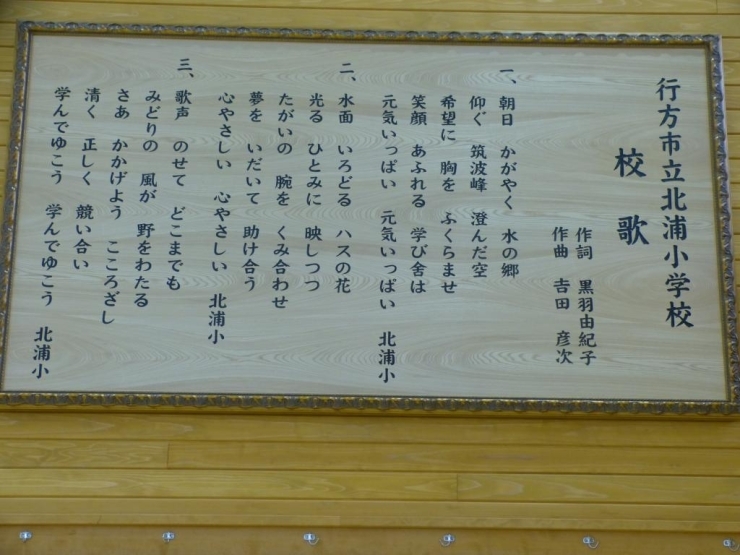 行方市立北浦小学校
校歌
作詞 黒羽由紀子
作曲 吉田 彦次
一、朝日 かがやく 水の郷
仰ぐ 筑波峰 澄んだ空
希望に 胸を ふくらませ
笑顔 あふれる 学び舎は
元気いっぱい 元気いっぱい 北浦小
二、水面 いろどる ハスの花
光る ひとみに 映しつつ
たがいの 腕を くみ合わせ
夢を いだいて 助け合う
心やさしい 心やさしい 北浦小
三、歌声 のせて どこまでも
みどりの 風が 野をわたる
さあ かかげよう こころざし
清く 正しく 競い合い
学んでゆこう 学んでゆこう 北浦小